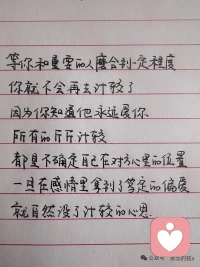 等你和重要的人磨合到一定程度
你就不会再去计较了
因为你知道他永远爱你
所有的斤斤计较
都是不确定自己在对方心里的位置
一旦在感情里拿到了笃定的偏爱
就自然没了计较的心思